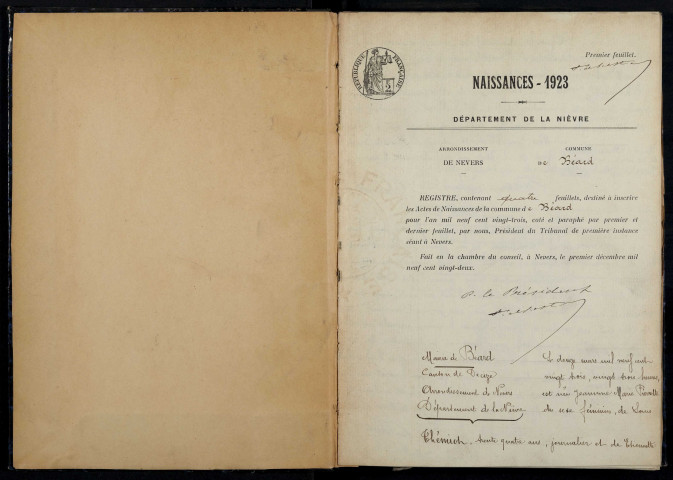 RÉPUBLIQUE FRANÇAISE
Premier feuillet.
NAISSANCES - 1923
DÉPARTEMENT DE LA NIÈVRE
ARRONDISSEMENT
DE NEVERS
COMMUNE
DE Béard
REGISTRE, contenant quatre feuillets, destiné à inscrire
les Actes de Naissances de la commune de Béard
pour l'an mil neuf cent vingt-trois, coté et paraphé par premier et
dernier feuillet, par nous, Président du Tribunal de première instance
séant à Nevers.
Fait en la chambre du conseil, à Nevers, le premier décembre mil
neuf cent vingt-deux.
P. le Président
Mairie de Béard
Canton de Decize
Arrondissement de Nevers
Département de la Nièvre
Le douze mars mil neuf cent
vingt trois, vingt trois heures,
est née Jeannine Marie
du sexe féminin, de Louis
trente quatre ans, journalier et de